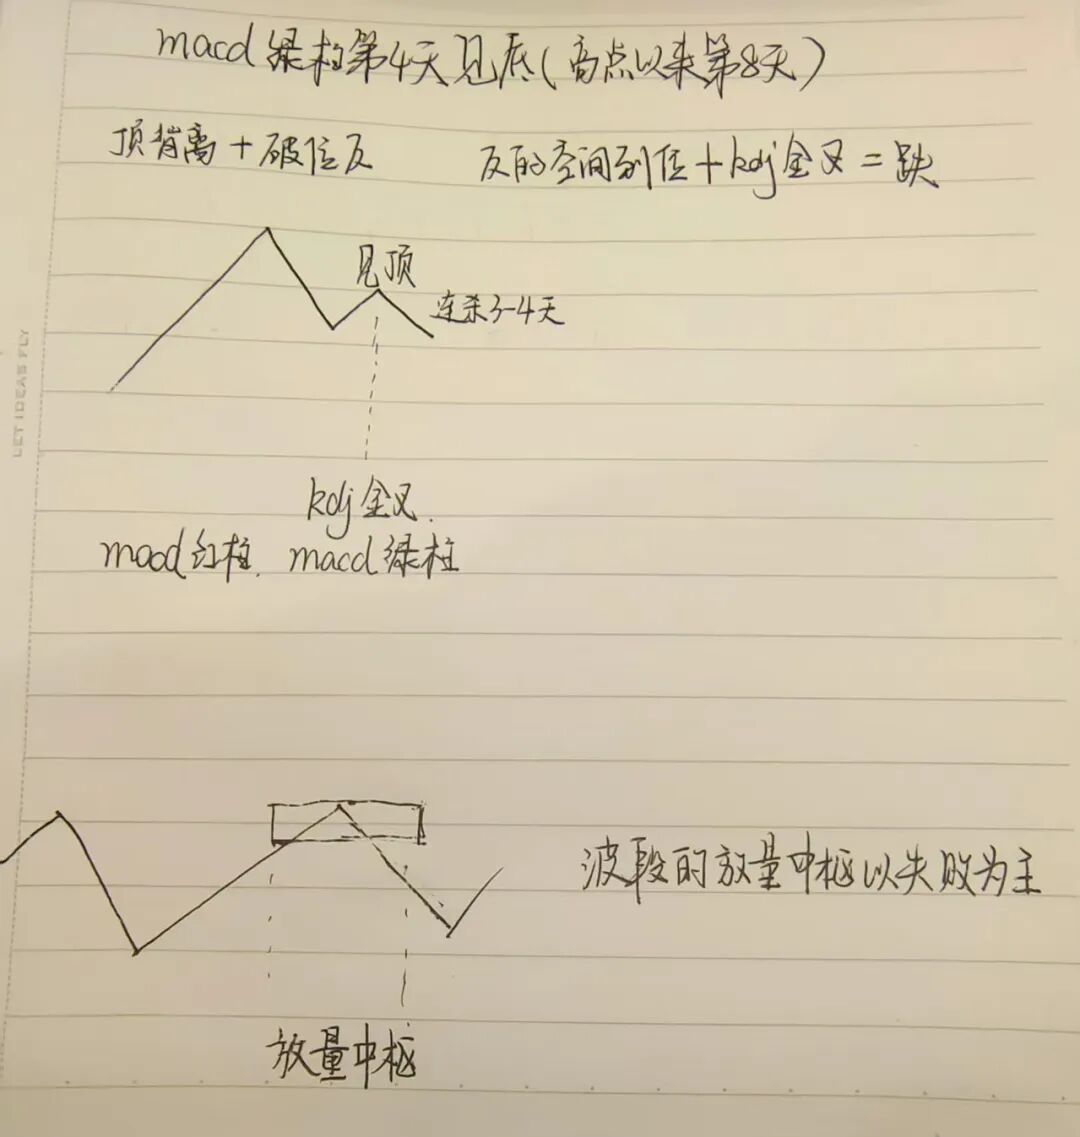 macd绿柱第4天见底(高点以来第8天)
顶背离+破位反
反的空间到位+kdj金叉=跌
见顶
连杀3-4天
kdj金叉.
macd红柱. macd绿柱
波段的放量中枢以失败为主
放量中枢
LET IDEAS FLY